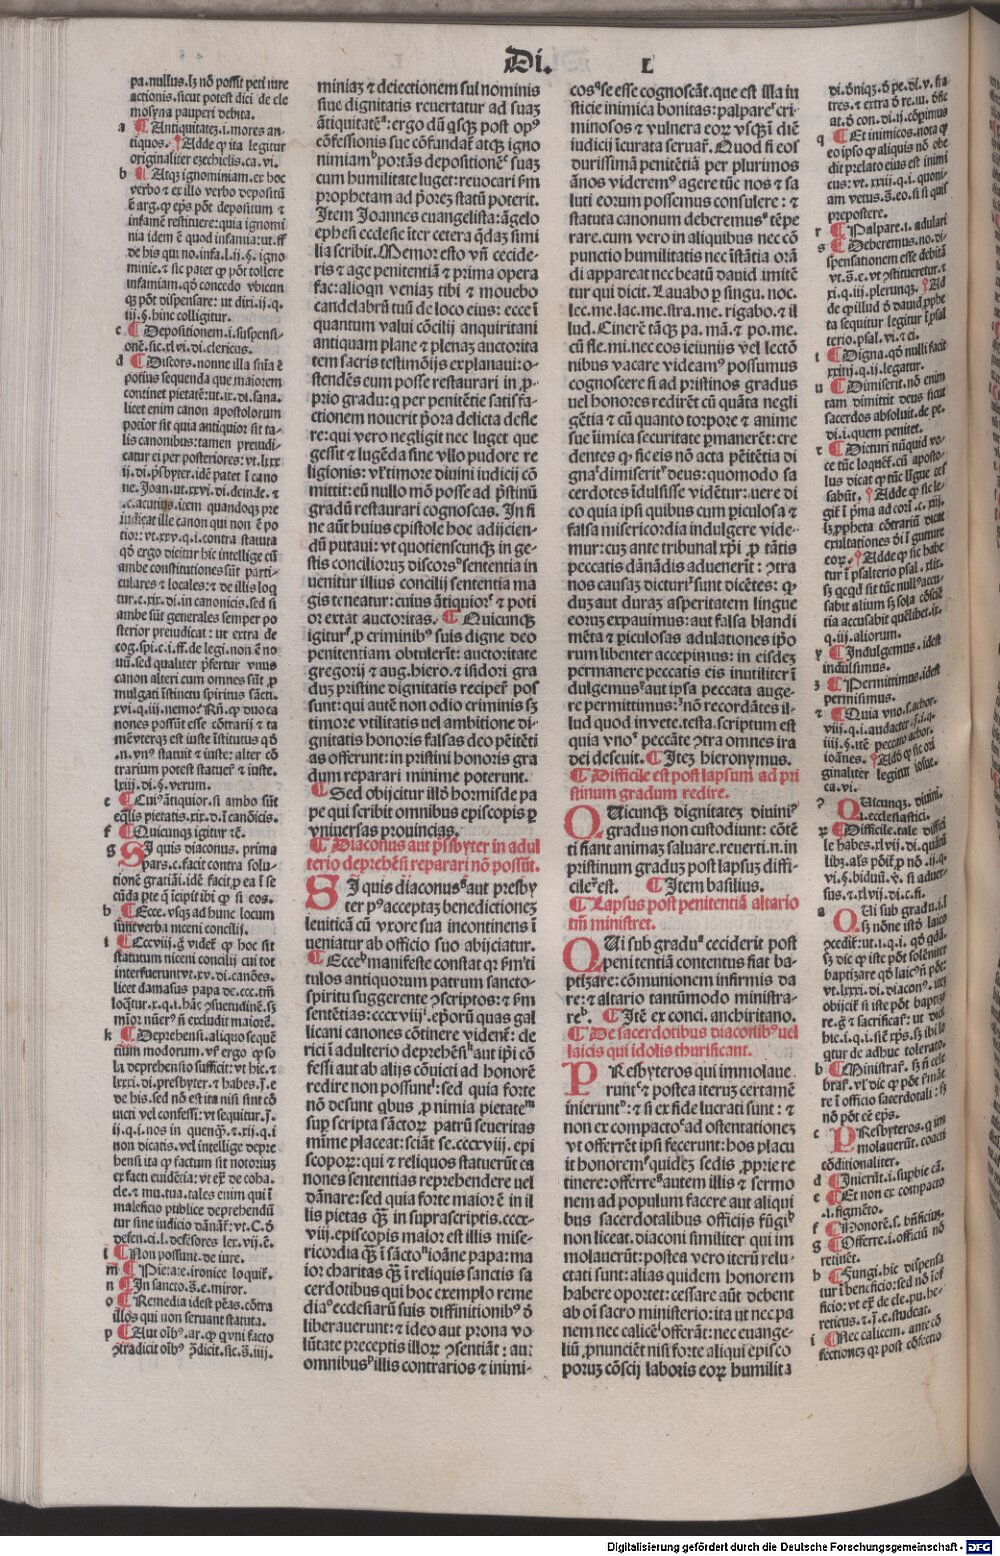 Di. L
pa.nullus.lz nō possit peti iure
actionis.sicut potest dici de ele
mosyna pauperi debita.
a ¶ Antiquitatez.i.mores an-
tiquos. ¶Adde ꝙ ita legitur
originaliter ezechielis.ca.vi.
b ¶ Atqz ignominiam.ex hoc
verbo ⁊ ex illo verbo depositū
ē arg.ꝙ eps pōt depositum ⁊
infamē restituere:quia ignomi
nia idem ē quod infamia:ut.ff
de his qui no.infa.l.ij.§.igno
minie.⁊ sic patet ꝙ pōt tollere
infamiam.qd̄ concedo vbicun
qz pōt dispensare: ut diri.ij.q.
iij.§.hinc colligitur.
c ¶ Depositionem.i.suspensi-
onē.sic.xlvi.di.clericus.
d ¶ Discors.nonne illa sn̄ia ē
potius sequenda que maiorem
continet pietatē:ut.ix.di.sana.
licet enim canon apostolorum
potior sit quia antiquior sit ta-
lis canonibus:tamen preiudi-
catur ei per posteriores: vt.lxxx
ij.di.pr̄sbyter.idē patet ī cano
ne.Joan.ut.xxvi.di.deinde.⁊
.c.acutius.item quandoqz pre
iudicat ille canon qui non ē po
tior:vt.xxv.q.i.contra statuta
qd̄ ergo dicitur hic intellige cū
ambe constitutiones sūt parti-
culares ⁊ locales:⁊ de illis loq
tur.c.xix.di.in canonicis.sed si
ambe sūt generales semper po
sterior preiudicat: ut extra de
cog.spi.c.i.ff.de legi.non ē no
uū.sed qualiter p̄fertur vnus
canon alteri cum omnes sūt ꝓ
mulgati īstinctu spiritus sācti.
xvi.q.iij.nemo.Rn̄.ꝙ duo ca
nones possūt esse cōtrarij ⁊ ta
mē vterqz est iuste īstitutus qd̄
.n.vnꝰ statuit ⁊ iuste: alter cō
trarium potest statuere ⁊ iuste.
lxiij.di.§.verum.
e ¶ Cuiꝰ āntiquior.si ambo sūt
eqles pietatis.xix.di.ī canōicis.
f ¶ Quicunqz igitur ⁊c.
g Si quis diaconus. prima
pars.c.facit contra solu-
tionē gratiāi.idē facit.p ea ī se
cūda pte q̄ īcipit ibi ꝙ si eos.
h ¶ Ecce.vsqz ad hunc locum
sunt verba niceni concilij.
i ¶ Cccviij.§ videt ꝙ hoc sit
statutum niceni concilij cui tot
interfuerunt vt.xv.di.canōes.
licet damasus papa de.ccc.tm̄
loq̄tur.x.q.i.hāc ꝯsuetudinē.sz
mīor nūerꝰ n̄ excludit maiorē.
k ¶ Deprehensi.aliquo sequē
tium modorum.vꝉ ergo ꝙ so
la deprehensio sufficit: vt hic.⁊
lxxxi.di.presbyter.⁊ habes.j.e
de his.sed nō est ita nisi sint cō
uicti vel confessi: vt sequitur.j.
ij.q.i.nos in quenqz.⁊.xij.q.i
non dicatis.vel intellige depre
hensi ita ꝙ factum sit notorius
ex facti euidētia: vt ex̄ de coha.
cle.⁊ mu.tua.tales enim qui ī
maleficio publice deprehendū
tur sine iudicio dānāt: vt.C.d̄
defen.ci.l.defēsores lex.vij.ē.
l ¶ Non possunt.de iure.
m ¶ Pietate.ironice loquit̄.
n ¶ In sancto.s̄.e.miror.
o ¶ Remedia idest pēas.cōtra
illos qui non seruant statuta.
p ¶ Aut oībꝰ.ar.ꝙ qui facto
ꝯtradicit oībꝰ ꝯdicit.sic.s̄.iiij.
miniaz ⁊ deiectionem sui nominis
siue dignitatis reuertatur ad suaz
āntiquitatēᵃ:ergo dū q̄sqz post opꝰ
cōfessionis sue cōfundat̄ atqz igno
nimiamᵇ portās depositionēᶜ suaz
cum humilitate luget:reuocari ẜm
prophetam ad p̄orez statū poterit.
Item Joannes euangelista:āgelo
ephesi ecclesie īter cetera q̄daz simi
lia scribit.Memor esto vn̄ cecide-
ris ⁊ age penitentiā ⁊ prima opera
fac:alioqn veniaz tibi ⁊ mouebo
candelabrū tuū de loco eius: ecce ī
quantum valui cōcilij anquiritani
antiquam plane ⁊ plenaz auctorita
tem sacris testimōijs explanaui:o-
stendēs eum posse restaurari in ꝓ-
prio gradu:q per penitētie satisfa-
ctionem nouerit p̄ora delicta defle
re: qui vero negligit nec luget que
gessit ⁊ lugēda sine vllo pudore re
ligionis: vltimore diuini iudicij cō
mittit: eū nullo mō posse ad p̄stinū
gradū restaurari cognoscas. In fi
ne aūt huius epistole hoc adijcien-
dū putaui: vt quotienscunqz in ge-
stis conciliorum discorsᵈ sententia in
uenitur illius concilij sententia ma
gis teneatur: cuius āntiquiorᵉ ⁊ poti
or extat auctoritas. ¶ Quicunqz
igiturᶠ.p criminibꝰ suis digne deo
penitentiam obtulerit: auctoritate
gregorij ⁊ aug.hiero.⁊ isidori gra
duz pristine dignitatis recipere pos
sunt: qui autē non odio criminis sz
timore vtilitatis vel ambitione di-
gnitatis honoris falsas deo pēitēti
as offerunt:in pristini honoris gra
dum reparari minime poterunt.
¶ Sed obijcitur illd̄ hormisde pa
pe qui scribit omnibus episcopis ꝑ
vniuersas prouincias.
¶ Diaconus aut pr̄sbyter in adul
terio deprehēsi reparari nō possūt.
SI quis diaconusᵍ aut presby
ter pꝰ acceptaz benedictionez
leuiticā cū vxore sua incontinens ī
ueniatur ab officio suo abijciatur.
¶ Ecceʰ manifeste constat qꝛ ẜm ti
tulos antiquorum patrum sancto-
spiritu suggerente ꝯscriptos:⁊ ẜm
sentētias:cccxviijⁱ.ep̄orū quas gal
licani canones cōtinere vident̄: cle
rici ī adulterio deprehēsiᵏ aut ip̄i cō
fessi aut ab alijs cōuicti ad honorē
redire non possuntˡ: sed quia forte
nō desunt qbus ꝓ nimia pietateᵐ
suꝑ scripta sāctoꝝ patrū seueritas
mīime placeat:sciāt se.cccxviij. epi
scopoꝝ:qui ⁊ reliquos statuerūt ca
nones sententias reprehendere vel
dānare:sed quia forte maior ē in il
lis pietas qz̄ in suprascriptis.cccx-
viij.episcopis maior est illis mise-
ricordia qz̄ ī sāctoⁿ ioāne papa: ma
ior charitas qz̄ ī reliquis sanctis sa
cerdotibus qui hoc exemplo reme
diaᵒ ecclesiarū suis diffinitionibꝰ d̄
liberauerunt:⁊ ideo aut prona vo
lūtate preceptis illoꝝ ꝯsentiāt: au:
omnibusᵖ illis contrarios ⁊ inimi-
cosq̄ se esse cognoscāt.que est illa iu
sticie inimica bonitas: palpareʳ cri-
minosos ⁊ vulnera eoꝝ vsqz ī diē
iudicij īcurata seruare. Quod si eos
durissimā penitētiā per plurimos
ānos videremꝰ agere tūc nos ⁊ sa
luti eorum possemus consulere: ⁊
statuta canonum deberemusˢ tēpe
rare.cum vero in aliquibus nec cō
punctio humilitatis nec īstātia orā
di appareat nec beatū dauid imitē
tur qui dicit. Lauabo ꝑ singu.noc.
lec.me.lac.me.stra.me.rigabo.⁊ il
lud. Cinerē tāqz pa.mā.⁊ po.me.
cū fle.mi.nec eos ieiunijs vel lectō
nibus vacare videamꝰ possumus
cognoscere si ad pristinos gradus
uel honores redirēt cū quāta negli
gētia ⁊ cū quanto torpore ⁊ anime
sue īimica securitate ꝑmanerēt: cre
dentes ꝙ sic eis nō acta pēitētia di
gnaᵗ dimiseritᵘ deus: quomodo sa
cerdotes īdulsisse vidētur: uere di
co quia ipsi quibus cum piculosa ⁊
falsa misericordia indulgere vide-
mur: cuz ante tribunal xp̄i ꝓ tātis
peccatis dānādis aduenerit: ꝯtra
nos causaz dicturˣ sunt dicētes: ꝙ
duz aut duraz asperitatem lingue
eorus expauimus: aut falsa blandi
mēta ⁊ piculosas adulationes ip̄o
rum libenter accepimus: in eisdez
permanere peccatis eis inutiliter ī
dulgemusʸ aut ipsa peccata auge-
re permittimus:ᶻ nō recordātes il-
lud quod in vete.testa.scriptum est
quia vno⁊ peccāte ꝯtra omnes ira
dei deseuit. ¶ Itez hieronymus.
¶ Difficile est post lapsum ad pri
stinum gradum redire.
QUicunqz dignitatez diuiniꝰ
gradus non custodiunt: cōtē
ti fiant animaz saluare.reuerti.n.in
pristinum graduz post lapsuz diffi-
cile est. ¶ Item basilius.
¶ Lapsus post penitentiā altario
tm̄ ministret.
QUi sub graduᵃ ceciderit post
penitentiā contentus fiat ba-
ptizare:cōmunionem infirmis da
re:⁊ altario tantūmodo ministra-
reᵇ. ¶ Itē ex conci.anchiritano.
¶ De sacerdotibus diaconibꝰ uel
laicis qui idolis thurificant.
PResbyteros qui immolaue
runtᶜ ⁊ postea iteruz certamē
inieruntᵈ:⁊ si ex fide lucrati sunt: ⁊
non ex compactoᵉ ad ostentationez
vt offerrēt ipsi fecerunt: hos placu
it honoremᶠ quidez sedis ꝓprie re
tinere: offerreᵍ autem illis ⁊ sermo
nem ad populum facere aut aliqui
bus sacerdotalibus officijs fūgiʰ
non liceat.diaconi similiter qui im
molauerūt: postea vero iterū relu-
ctati sunt:alias quidem honorem
habere oportet:cessare aūt debent
ab oī sacro ministerio: ita ut nec pa
nem nec calicēⁱ offerāt: nec euange-
liū ꝓnuncient nisi forte aliqui episco
poruz cōscij laboris eoꝝ humilita
di.d̄niqz.d̄ pe.di.v.fra
tres.⁊ extra d̄ re.iu.d̄se
at.d̄ con.di.ij.cōpimus
q ¶ Et inimicos.nota ꝙ
eo ipso ꝙ aliquis nō obe
dit prelato eius est inimi
cus: vt.xxiij.q.i.quoni-
am vetus.s̄.eo.si si quis
prepostere.
r ¶ Palpare.i.adulari
s ¶ Deberemus.nō.di-
spensationem esse debitā
vt.s̄.e.vt ꝯstitueretur.⁊
xi.q.iij.plerunqz. ¶Ad
de ꝙ illud d̄ dauid ꝓphe
ta sequitur legitur ī psal
terio.psal.vi.⁊ ci.
t ¶ Digna.qd̄ nulli facit
xxiij.q.ij.legatur.
u ¶ Dimiserit.nō enim
tam dimittit deus sicut
sacerdos absoluit.de pe.
di.i.quem penitet.
x ¶ Dicturi nūquid vo-
ce tūc loquēt̄.cū aposto-
lus dicat ꝙ tūc līgue ces
sabūt. ¶ Adde ꝙ sic le-
git̄ ī p̄ma ad corī.c.xiij.
lz ꝓpheta cōtrariū dicat
exultationes dei ī gutture
eoꝝ. ¶ Adde ꝙ sic habe
tur ī psalterio psal.xlix.
sz qcqd sit tūc nullꝰ accu-
sabit alium sz sola cōsciē
tia accusabit quēlibet.ii.
q.iij.aliorum.
y ¶ Indulgemus.idest
indulsimus.
z ¶ Permittimus.idest
permisimus.
⁊ ¶ Quia vno.s.achor.
viij.q.i.audacter.s.i.q.
iiij.§.itē peccato achor.
ioānes. ¶Add ꝙ sic ori
ginaliter legitur iosue.
ca.vi.
ꝰ QUicunqz.diuini.
i.ecclesiastici.
ꝝ ¶ Difficile.tale diffici
le habes.xlvij.di.quāt
libz.als pōit̄ ꝓ nō.ij.q.
vi.§.biduū.v̄.si aduer-
sus.⁊.xlvij.di.c.fi.
a QUi sub gradu.i.l
sz nōne istō laico
ꝯcedit̄: ut.i.q.i.qd̄ qdā.
sz dic ꝙ iste pōt solēniter
baptizare qd̄ laicꝰ n̄ pōt:
vt.lxxi.di.diaconꝰ. itez
obijcit̄ si iste pōt baptiza
re.g̊ ⁊ sacrificare: ut dicit̄
hic.i.q.i.sic xp̄s.sz ibi lo
q̄tur de adhuc tolerato.
b ¶ Ministrare. sz n̄ cele
brare.vl̄ dic ꝙ pōt s̄māe
re ī officio sacerdotali: sz
nō pōt eē ep̄s.
c PResbyteros.q im
molauerūt.coacti
cōditionaliter.
d ¶ Inierūt.i.supbie cā.
e ¶ Et non ex compacto
.i.figmēto.
f ¶ Honorē.s.bn̄ficius.
g ¶ Offerre.i.officiū nō
retinēt.
h ¶ Fungi.hic dispensa
tur ī beneficio:sed nō ī of
ficio: vt ex̄ de cle.pu.he-
reticus.⁊.j.e.studeat.
i ¶ Nec calicem. ante cō
fectionez qꝛ post cōfectio
Digitalisierung gefördert durch die Deutsche Forschungsgemeinschaft - DFG